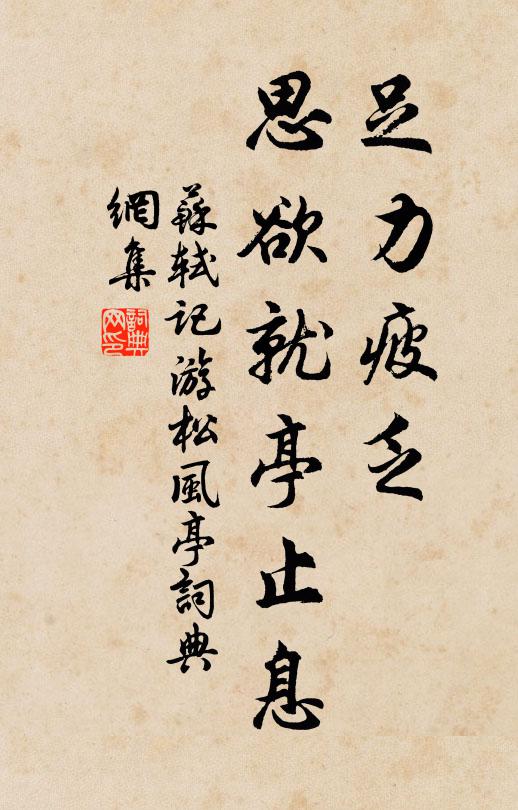 足力疲乏
思欲就亭止息
蘇軾記游松風亭詞典
網集
詞典
网印